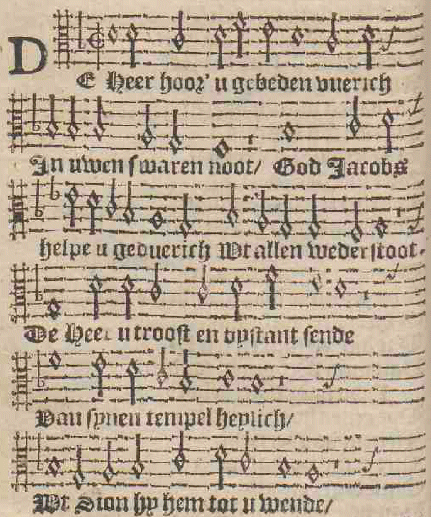 DE Heer hoor' u gebeden vuerich
In uwen swaren noot/ God Jacobs
helpe u geduerich Wt allen wederstoot.
De Heer u troost en bystant sende
Van synen tempel heylich/
Wt Sion hy hem tot u wende/